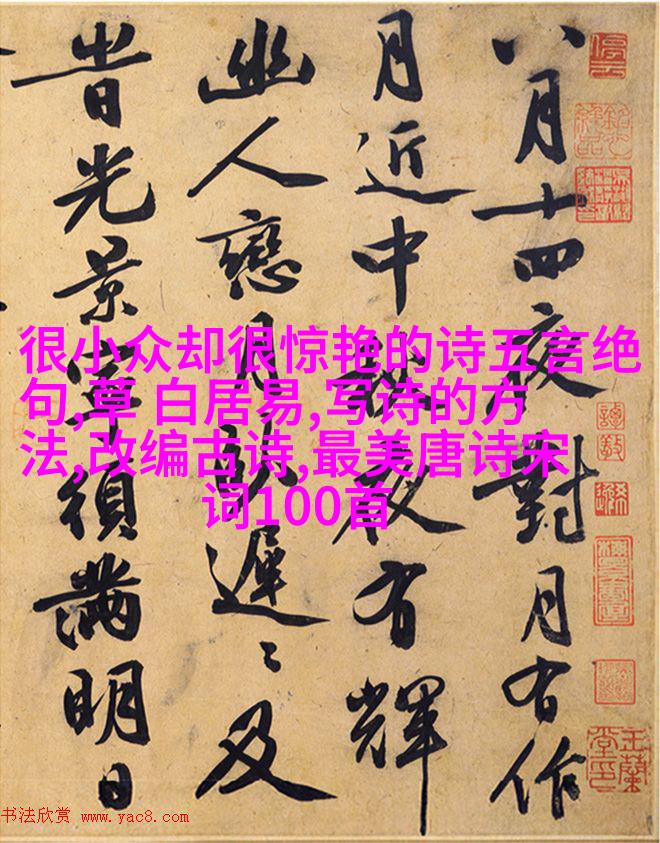 八月十四夜對月有作
月近中秋夜有輝
幽人戀月臥遲〻及
旹光景寧須滿明日
很小众却很惊艳的诗五言绝
句,草 白居易,写诗的方
法,改编古诗,最美唐诗宋
词100首
停雲
玉蘭堂印
书法欣赏 www.yac8.com